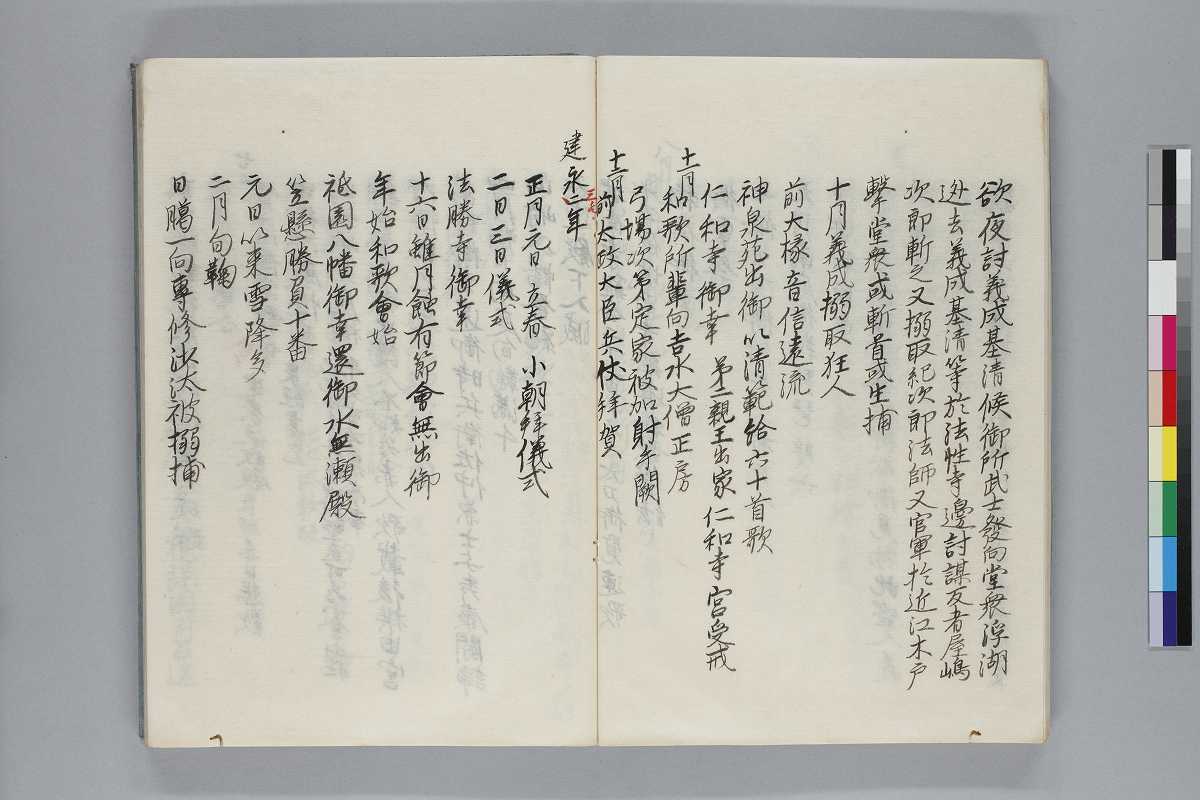 欲夜討義成基清候御所武士發向堂衆浮湖
迯去義成基清等於法性寺邊討謀反者屋嶋
次郎斬之又搦取紀次郎法師又官軍於近江木戸
擊堂衆或斬首或生捕
十月義成搦取狂人
前大掾音信遠流
神泉苑出御以清範給六十首歌
仁和寺御幸 第二親王出家仁和寺宮受戒
十一月和歌所輩向吉水大僧正房
弓場次第定家被加射手闕
十二月前太政大臣兵仗拜賀
建永二年
正月元日立春 小朝拜儀式
二日三日儀式
法勝寺御幸
十六日雖月蝕有節會無出御
年始和歌會始
祗園八幡御幸還御水無瀬殿
笠懸勝負十番
元日以来雪降多
二月旬鞠
日﨟一向專修法沙汰被搦捕